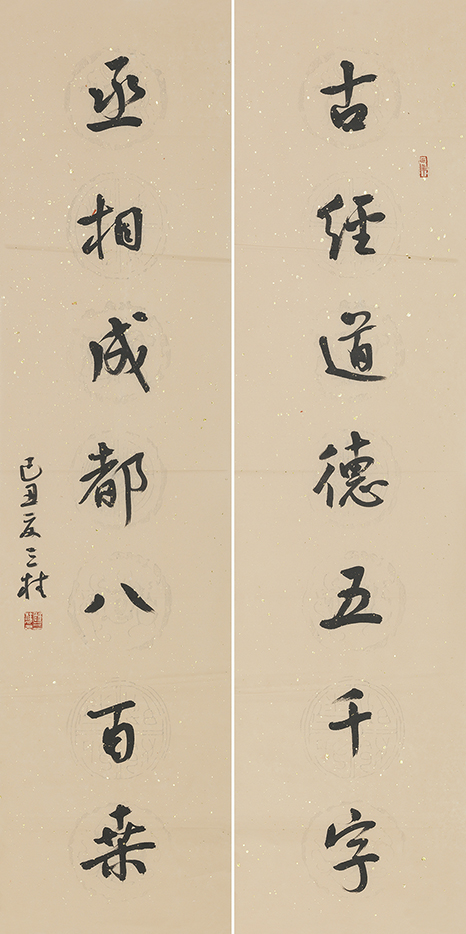 古經道德五千字
丞相成都八百桒
己丑夏三柱